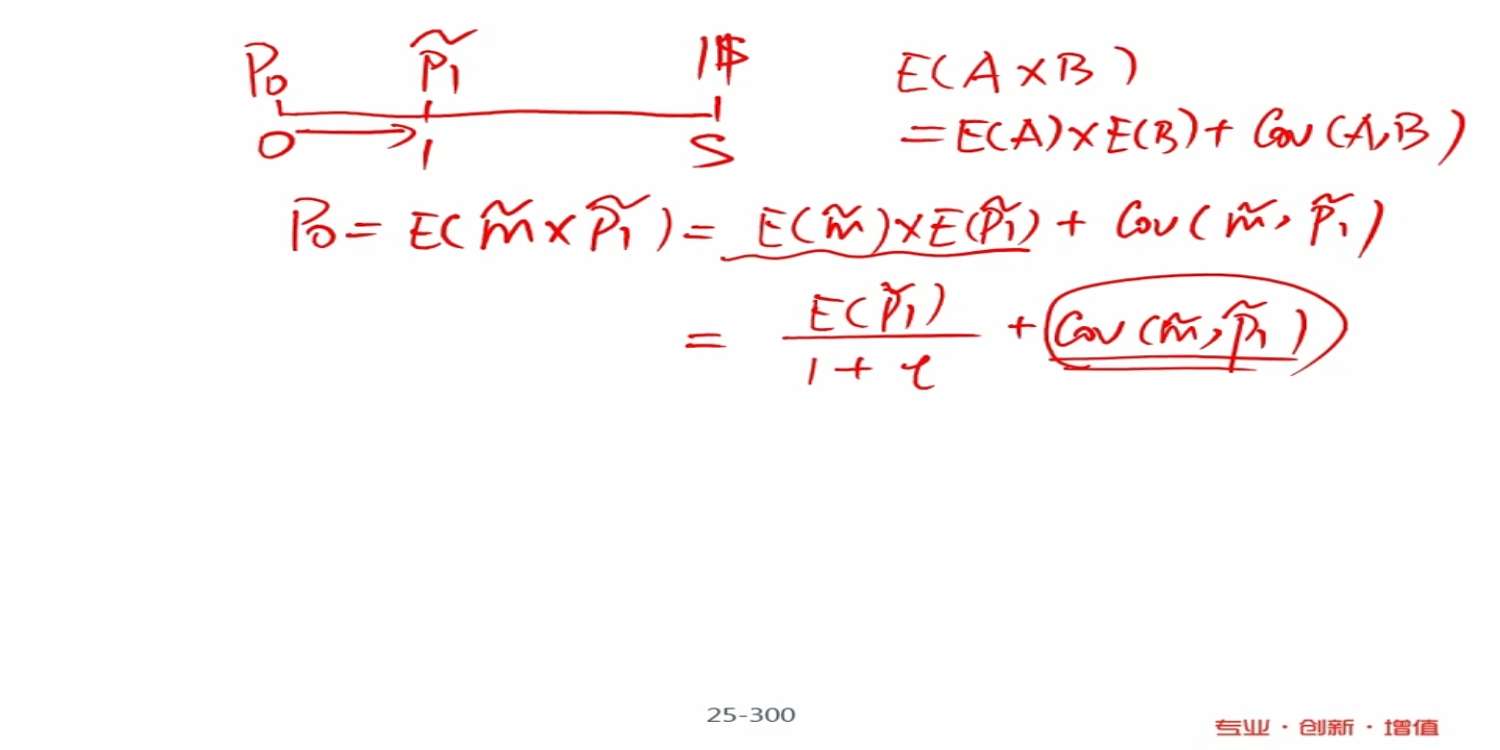 P₀ P̃₁ 1$
0 1 S
E(A×B)
=E(A)×E(B)+Cov(A,B)
P₀=E(m̃×P̃₁)=E(m̃)×E(P̃₁)+Cov(m̃,P̃₁)
=E(P̃₁)/1+r+Cov(m̃,P̃₁)
25-300
专业·创新·增值